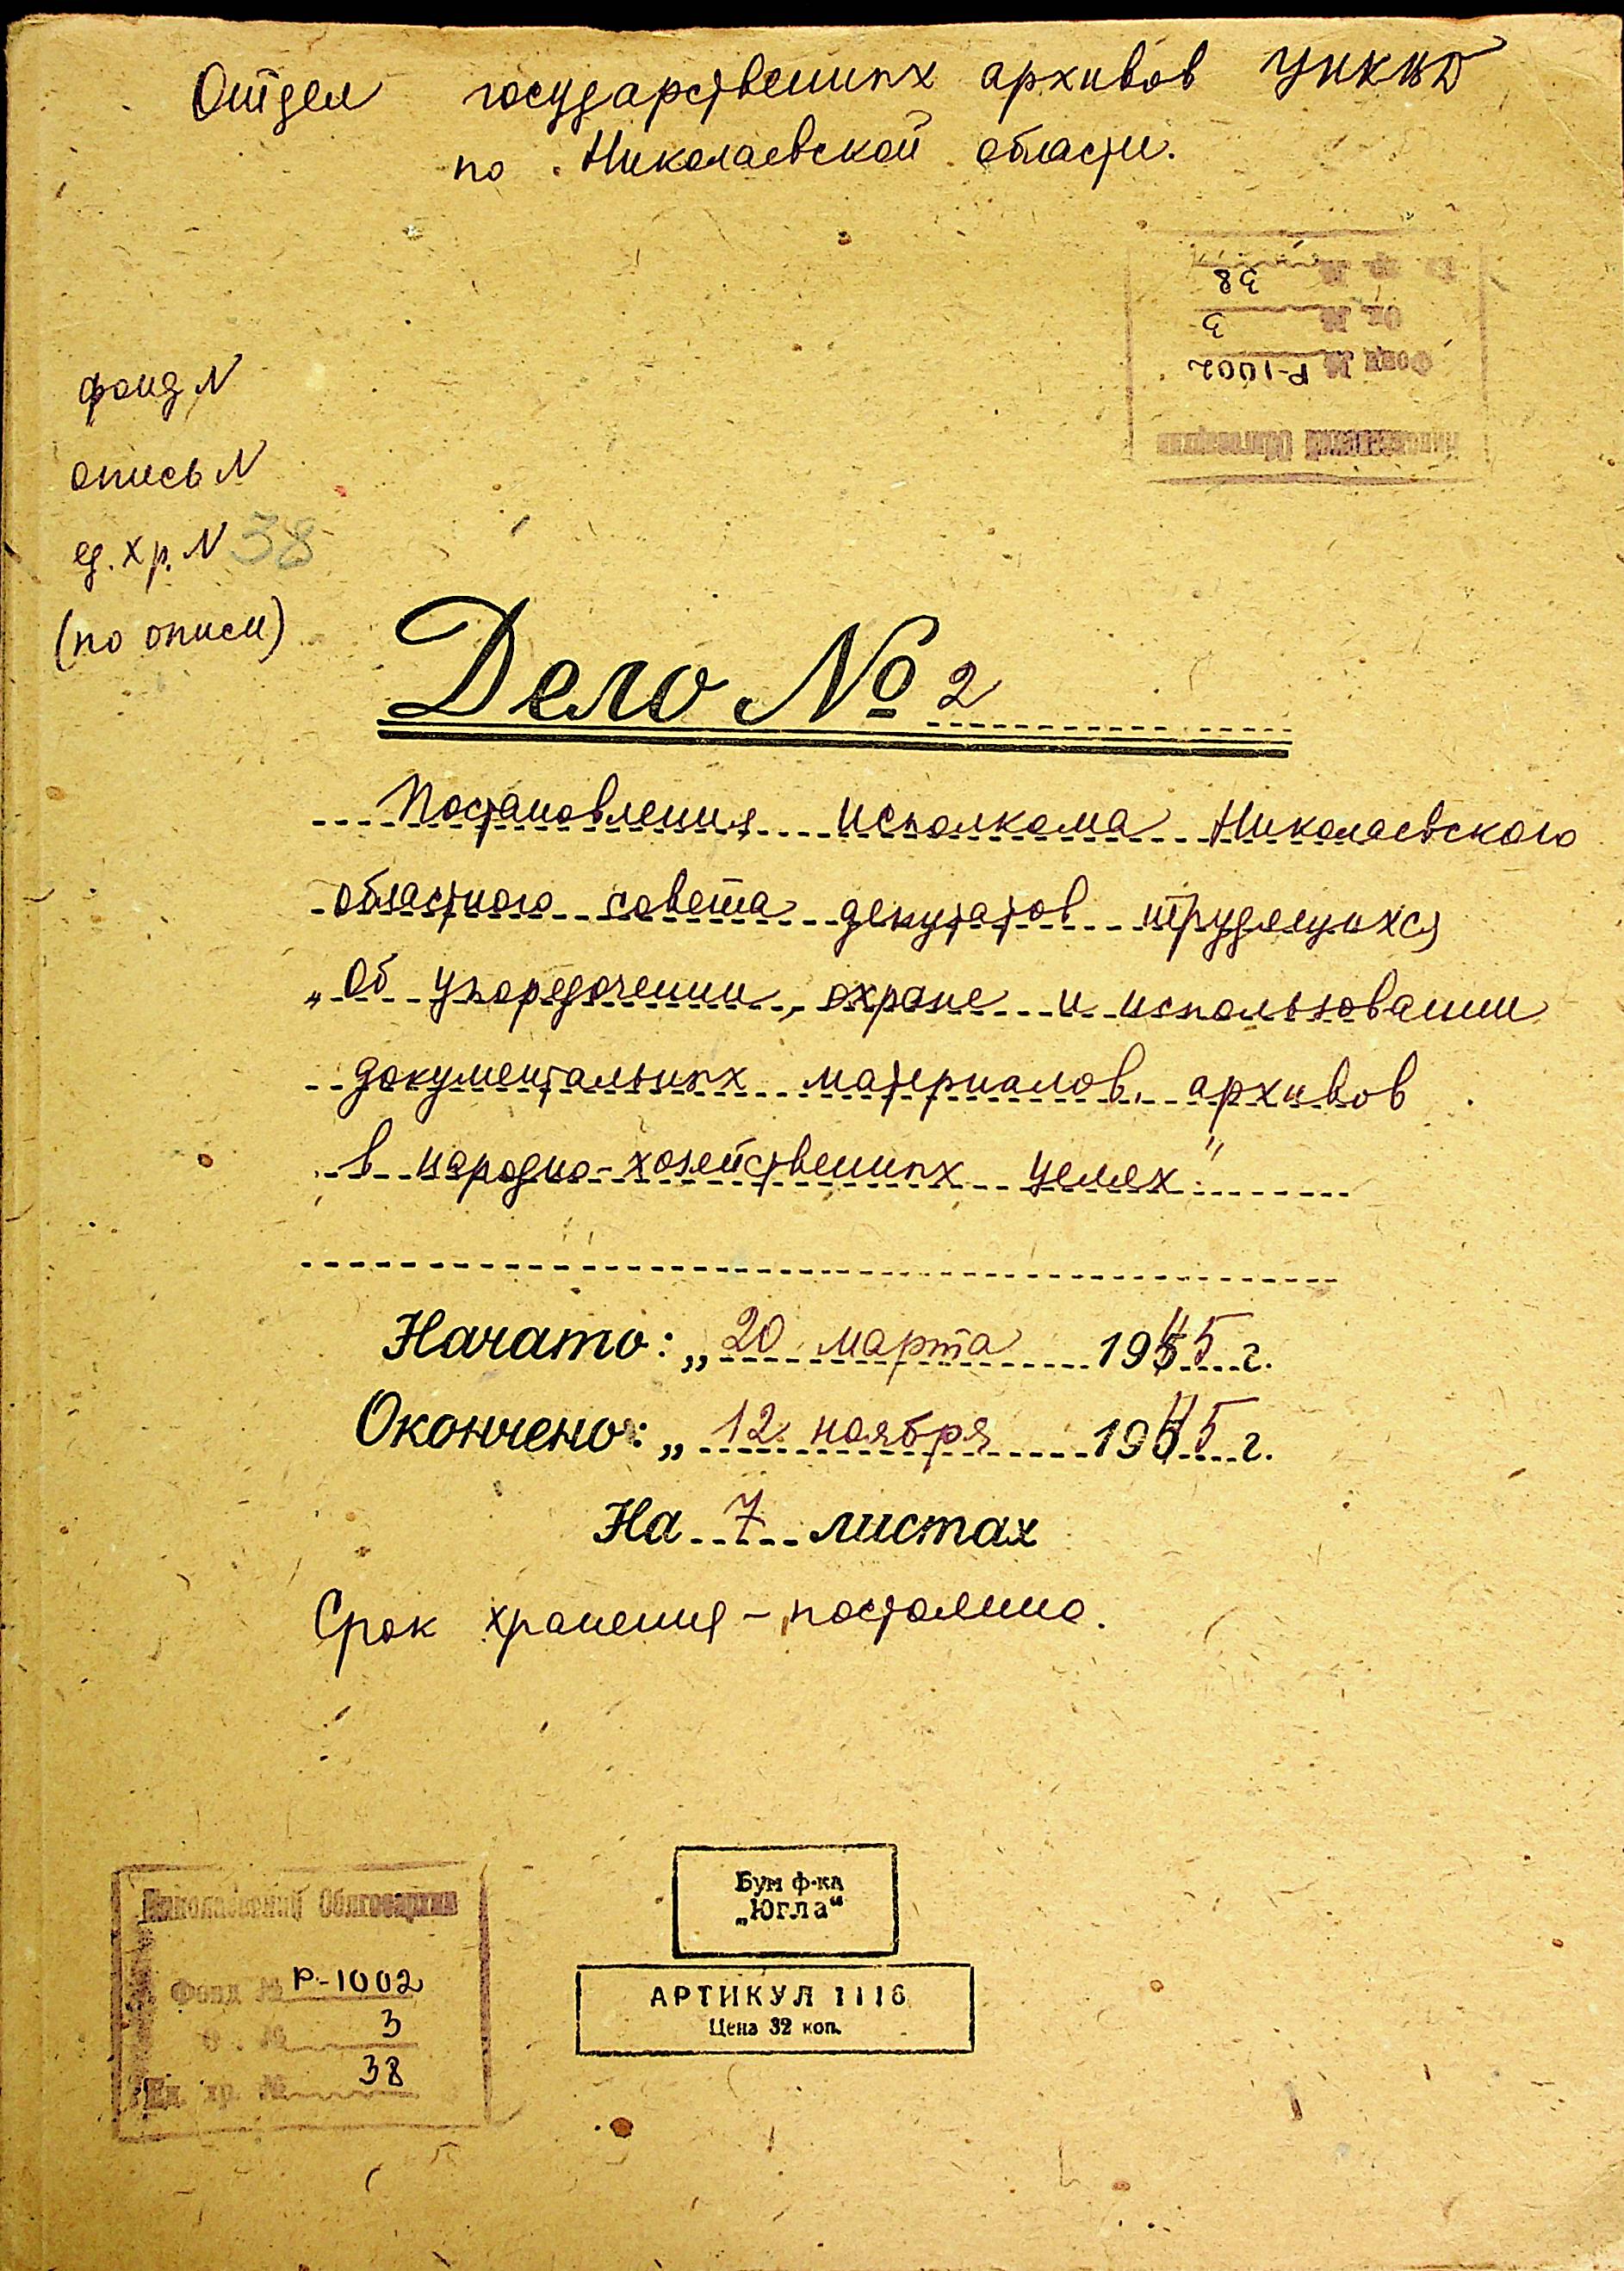 Отдел государственных архивов УНКВД
по Николаевской области.
Николаевский Облгосархив
Фонд № Р-1002
Оп. № 3
Ед. хр. № 38
фонд N
опись N
ед. хр. N 38
(по описи)
Дело № 2
Постановления исполкома Николаевского
областного совета депутатов трудящихся
„Об упорядочении, охране и использовании
документальных материалов, архивов
в народно-хозяйственных целях"
Начато: „20 марта 1945 г.
Окончено: „12 ноября 1945 г.
На 7 листах
Срок хранения – постоянно.
Бум ф-ка
„Югла“
АРТИКУЛ 1116
Цена 32 коп.
Николаевский Облгосархив
Фонд № Р-1002
О . № 3
Ед. хр. № 38